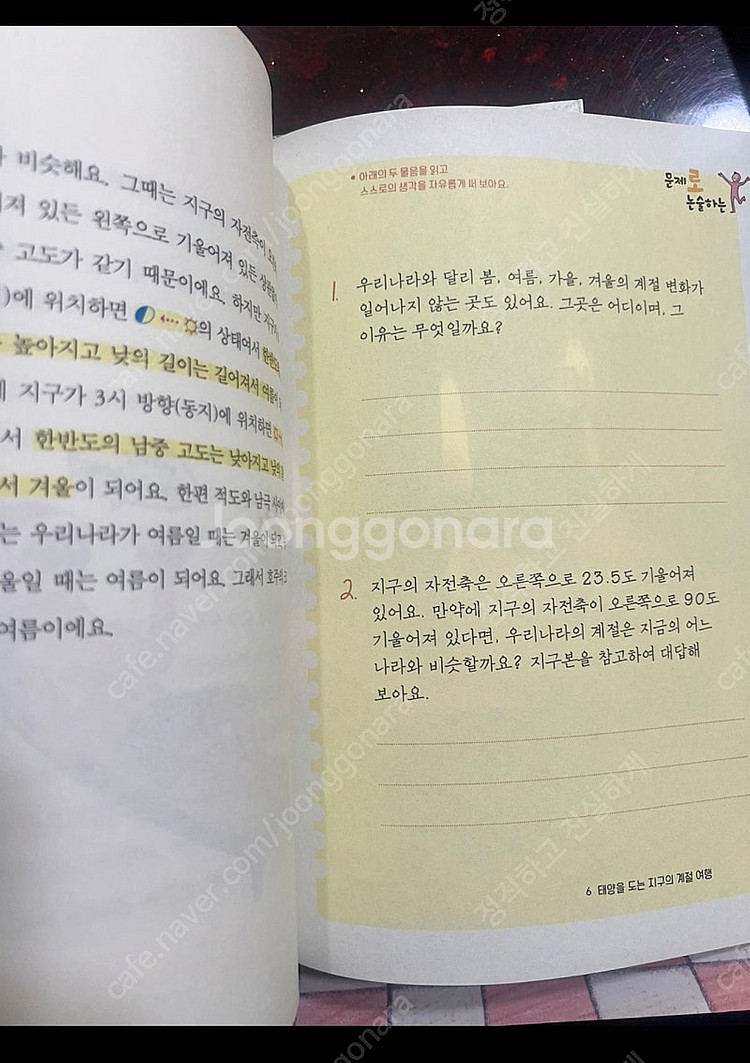 비슷해요. 그때는 지구의 자전축이
져 있든 왼쪽으로 기울어져 있든
고도가 같기 때문이에요. 하지만
)에 위치하면 의 상태여서
높아지고 낮의 길이는 길어져서
지구가 3시 방향(동지)에 위치하면
서 한반도의 남중 고도는 낮아지고
서 겨울이 되어요. 한편 적도와 남극
는 우리나라가 여름일 때는 겨울이
울일 때는 여름이 되어요. 그래서 호주의
여름이에요.
• 아래의 두 물음을 읽고
스스로의 생각을 자유롭게 써 보아요.
문제로
논술하는
1. 우리나라와 달리 봄, 여름, 가을, 겨울의 계절 변화가
일어나지 않는 곳도 있어요. 그곳은 어디이며, 그
이유는 무엇일까요?
2. 지구의 자전축은 오른쪽으로 23.5도 기울어져
있어요. 만약에 지구의 자전축이 오른쪽으로 90도
기울어져 있다면, 우리나라의 계절은 지금의 어느
나라와 비슷할까요? 지구본을 참고하여 대답해
보아요.
6 태양을 도는 지구의 계절 여행
Joonggonara
cafe.naver.com/joonggonara
정직하고 진실하게